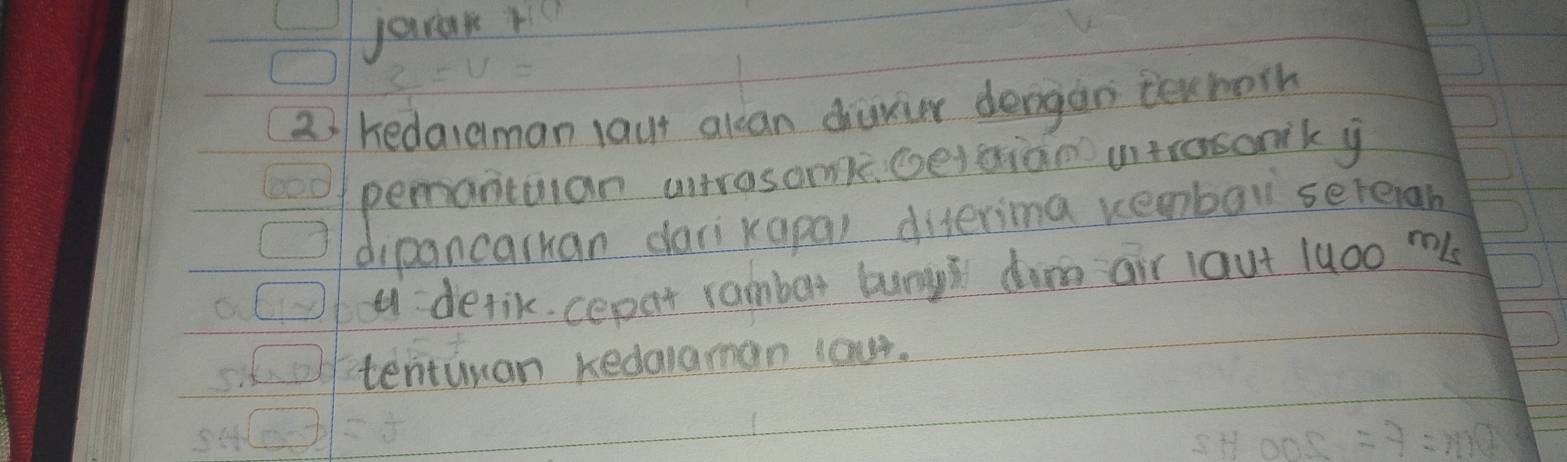 jarak
2. kedalaman laut akan diukur dengan teknoik
pemantulan ultrasonik. Getaran ultrasonik yg
dipancarkan dari kapal diterima kembali setelah
4 detik. cepat rambat bunyi dlm air laut 1400 m/s
tentukan kedalaman laut.